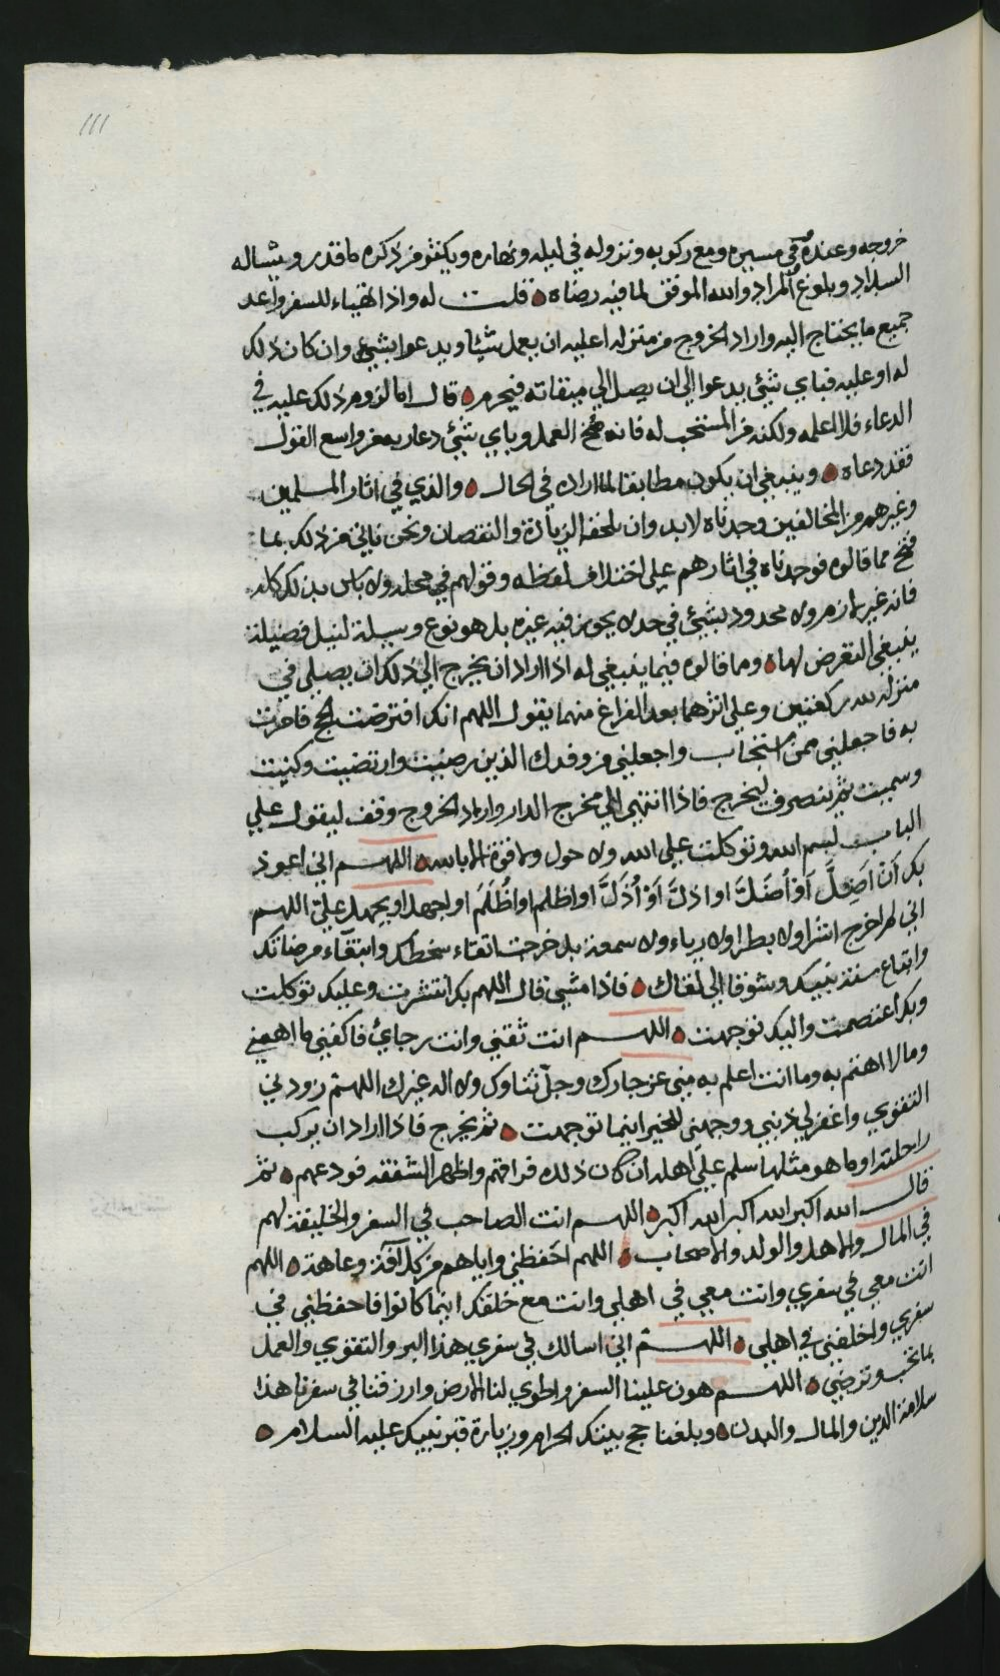 111
خروجه وعنده في مسيره ومع ركوبه ونزوله في ليله ونهاره ويكثر من ذكره ما قدر ويسأله
السداد وبلوغ المراد والله الموفق لما فيه رضاه قلت له واذا تهياء للسفر واعد
جميع ما يحتاج اليه واراد الخروج من منزله اعليه ان يعمل شيئا ويدعوا بشيئ وان كان ذلك
له او عليه فباي شيئ يدعوا الى ان يصل الي ميقاته فيحرم قال اما لزوم ذلك عليه في
الدعاء فلا اعلمه ولكنه من المستحب له فانه مخ العمل وباي شيئ دعا ربه من واسع القول
فقد دعاه وينبغي ان يكون مطابقا لما اراده في الحال والذي في اثار المسلمين
وغيرهم من المخالفين وجدناه لابد وان تلحقه الزيادة والنقصان ونحن ناتي من ذلك بما
فتح مما قالوه فوجدناه في اثارهم على اختلاف لفظه وقولهم في محله ولا باس بذلك كله
فانه غير لازم ولا محدود بشيئ في حد لا يجوز فيه غيره بل هو نوع وسيلة لنيل فضيلة
ينبغي التعرض لها ومما قالوه فيما ينبغي له اذا اراد ان يخرج الي ذلك ان يصلي في
منزله ركعتين وعلى اثرهما بعد الفراغ منهما يقول اللهم انك افترضت الحج فامرت
به فاجعلني ممن استجاب واجعلني من وفدك الذين رضيت وارتضيت وكنيت
وسميت ثم ينصرف ليخرج فاذا انتهى الى مخرج الدار واراد الخروج وقف ليقول علي
الباب بسم الله وتوكلت علي الله ولا حول ولا قوة الا بالله اللهم اني اعوذ
بك أن اَضِلَّ اَوْ أُضَلَّ او اذل اَوْ أُذَلَّ او اظلم او اُظْلَمَ او اجهل او يجهل علي اللهم
اني لم اخرج اشرا ولا بطرا ولا رياء ولا سمعة بل خرجت اتقاء سخطك وابتغاء مرضاتك
واتباع سنة نبيك وشوقا الى لقاك فاذا مشي قال اللهم بك انتشرت وعليك توكلت
وبك اعتصمت واليك توجهت اللهم انت ثقتي وانت رجاي فاكفني ما اهمني
وما لا اهتم به وما انت اعلم به مني عز جارك وجل ثناوك ولا اله غيرك اللهم زودني
التقوي واغفر لي ذنبي ووجهني للخير اينما توجهت ثم يخرج فاذا اراد ان يركب
راحلته او ما هو مثلها سلم على اهله ان كان ذلك فراقهم واظهر الشفقة فودعهم ثم
قال الله اكبر الله اكبر الله اكبر اللهم انت الصاحب في السفر والخليفة لهم
في المال والاهل والولد والاصحاب اللهم احفظني واياهم من كل آفة وعاهة اللهم
انت معي في سفري وانت معي في اهلي وانت مع خلقك اينما كانوا فاحفظني في
سفري واخلفني في اهلي اللهم اني اسالك في سفري هذا البر والتقوي والعمل
بما تحب وترضي اللهم هون علينا السفر واطوي لنا الارض وارزقنا في سفرنا هذا
سلامة الدين والمال والبدن وبلغنا حج بيتك الحرام وزيارة قبر نبيك عليه السلام